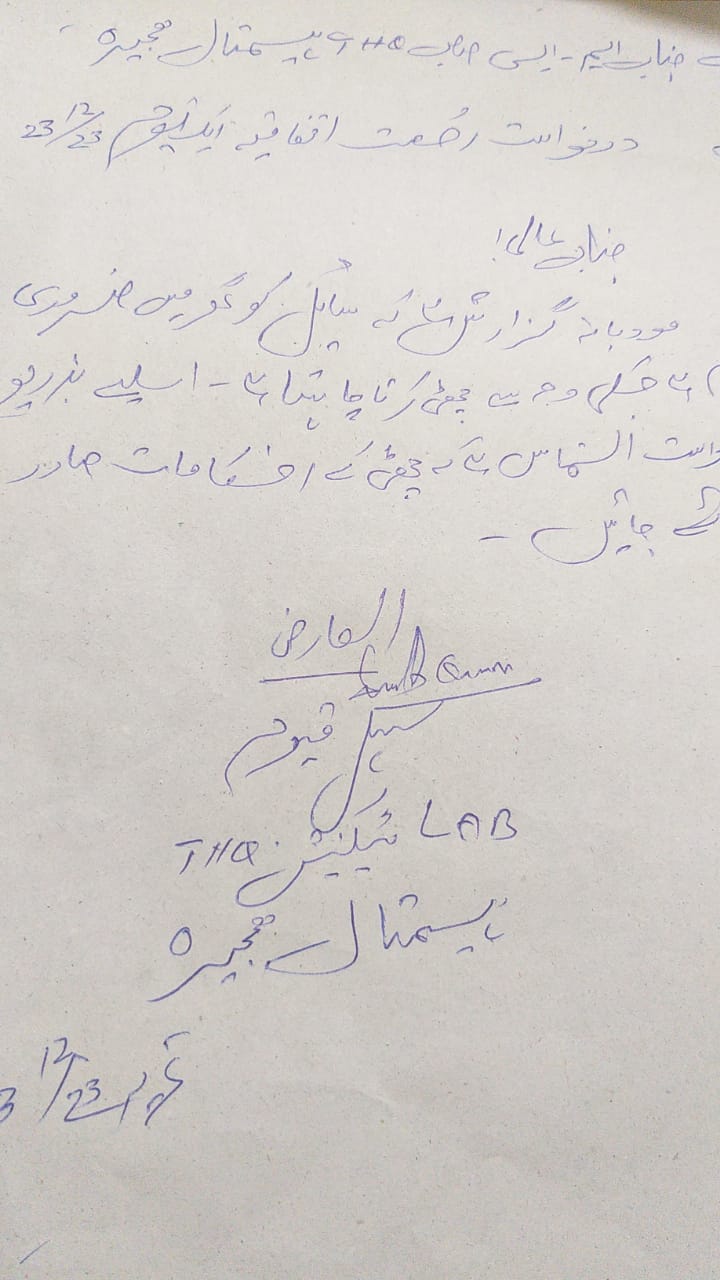 جناب ایم۔ایس صاحب THQ ہسپتال ہجیرہ
درخواست رخصت اتفاقیہ ایک یوم 23/12/23
جناب عالی!
مودبانہ گزارش ہے کہ سائل کو گھر میں ضروری
ہے جسکی وجہ سے چھٹی کرنا چاہتا ہے۔ اسلیے بذریعہ
التماس ہے کہ چھٹی کے احکامات صادر
جائیں۔
العارض
قیوم
LAB ٹیکنیشن THQ
ہسپتال ہجیرہ
12/23